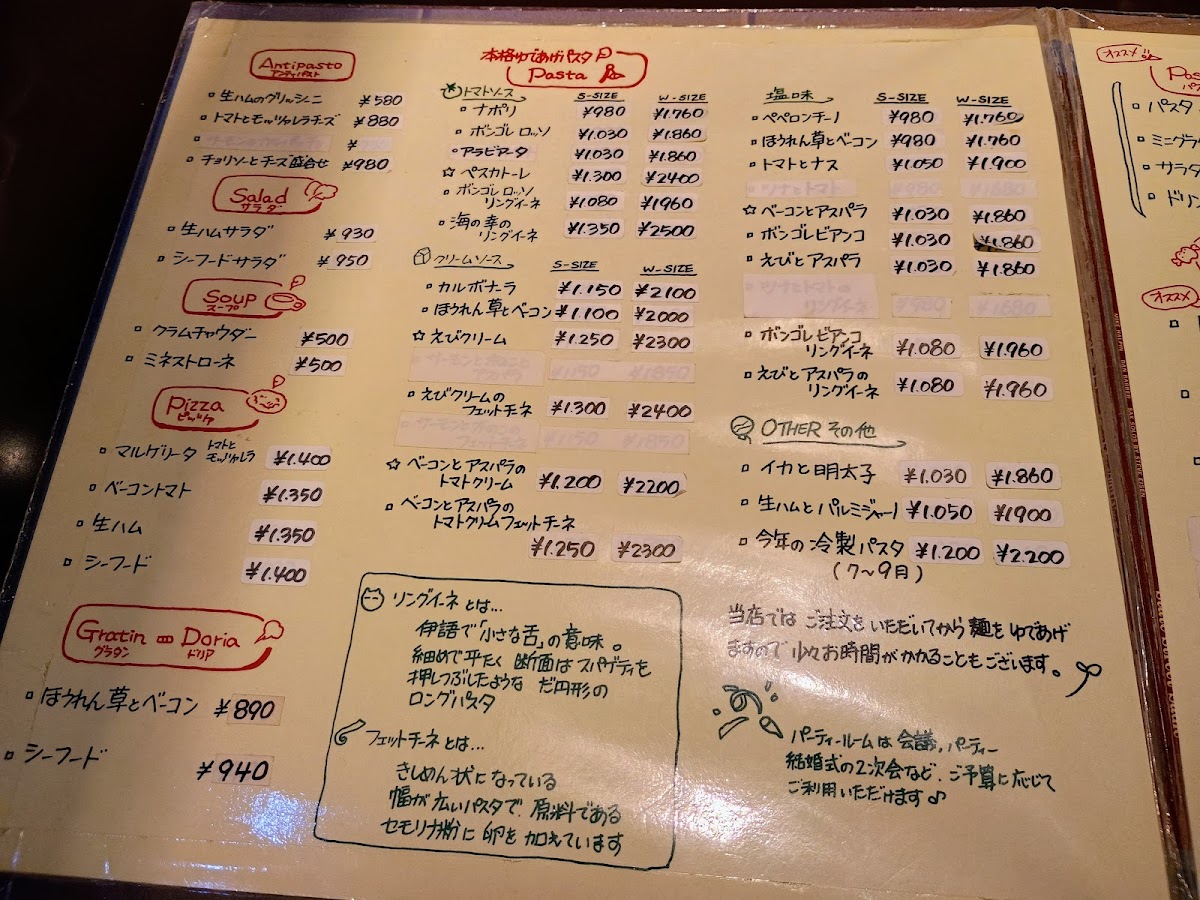 Antipasto
アンティパスト
生ハムのグリッシーニ ¥580
トマトとモッツァレラチーズ ¥880
チョリソーとチーズ盛合せ ¥980
Salad
サラダ
生ハムサラダ ¥930
シーフードサラダ ¥950
Soup
スープ
クラムチャウダー ¥500
ミネストローネ ¥500
Pizza
ピッツァ
マルゲリータ トマトと モッツァレラ ¥1.400
ベーコントマト ¥1.350
生ハム ¥1.350
シーフード ¥1.400
Gratin Doria
グラタン ドリア
ほうれん草とベーコン ¥890
シーフード ¥940
本格ゆであげパスタ
Pasta
トマトソース S-SIZE W-SIZE
ナポリ ¥980 ¥1.760
ボンゴレ ロッソ ¥1.030 ¥1.860
アラビアータ ¥1.030 ¥1.860
☆ ペスカトーレ ¥1.300 ¥2400
ボンゴレ ロッソ
リングイーネ ¥1.080 ¥1960
海の幸の
リングイーネ ¥1.350 ¥2500
クリームソース S-SIZE W-SIZE
カルボナーラ ¥1.150 ¥2100
ほうれん草とベーコン ¥1.100 ¥2000
☆ えびクリーム ¥1.250 ¥2300
サーモンとほうれん草 アスパラ ¥1150 ¥1850
えびクリームの
フェットチーネ ¥1.300 ¥2400
フェットチーネ ¥1150 ¥1850
☆ ベーコンとアスパラの
トマトクリーム ¥1.200 ¥2200
ベーコンとアスパラの
トマトクリームフェットチーネ
¥1.250 ¥2300
リングイーネとは...
伊語で「小さな舌」の意味。
細めで平たく 断面はスパゲティを
押しつぶしたような だ円形の
ロングパスタ
フェットチーネとは...
きしめん状になっている
幅が広いパスタで、原料である
セモリナ粉に 卵を加えています
塩味 S-SIZE W-SIZE
ペペロンチーノ ¥980 ¥1.760
ほうれん草とベーコン ¥980 ¥1.760
トマトとナス ¥1.050 ¥1.900
ツナとトマト ¥980 ¥1680
☆ ベーコンとアスパラ ¥1.030 ¥1.860
ボンゴレビアンコ ¥1.030 ¥1.860
えびとアスパラ ¥1.030 ¥1.860
ツナとトマトの
リングイーネ ¥980 ¥1680
ボンゴレビアンコ
リングイーネ ¥1.080 ¥1.960
えびとアスパラの
リングイーネ ¥1.080 ¥1.960
OTHER その他
イカと明太子 ¥1.030 ¥1.860
生ハムとパルミジャーノ ¥1.050 ¥1900
今年の冷製パスタ ¥1.200 ¥2.200
(7〜9月)
当店では ご注文をいただいてから 麺をゆであげ
ますので 少々お時間がかかることもございます。
パーティールームは 会議, パーティー
結婚式の2次会など、ご予算に応じて
ご利用いただけます♪
オススメ
パスタ
ミニグラ
サラダ
ドリン
オススメ